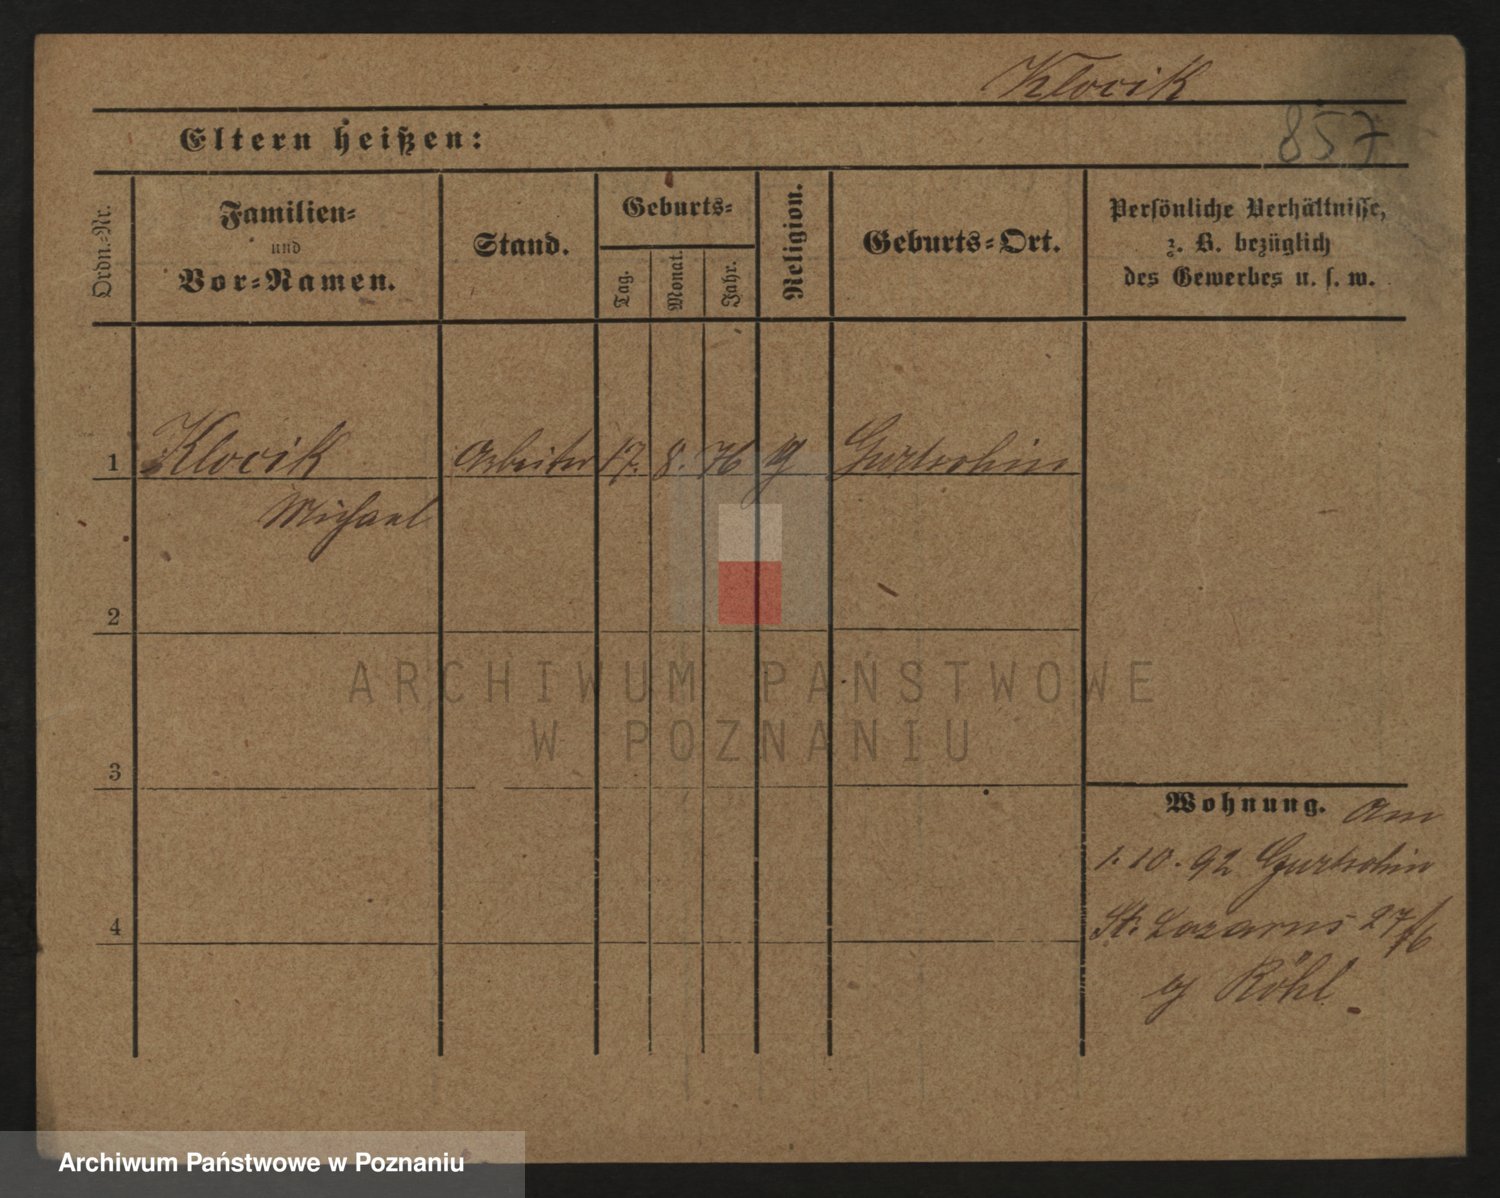 Klocik
857
Eltern heißen:
Ordn.=Nr.
Familien=
und
Vor=Namen.
Stand.
Geburts=
Tag.
Monat.
Jahr.
Religion.
Geburts=Ort.
Persönliche Verhältnisse,
z. B. bezüglich
des Gewerbes u. s. w.
1 Klocik Arbeiter 17. 8. 76 Gurtschin
Michael
2
3
4
Wohnung. Am
1. 10. 92 Gurtschin
St. Lazarus 27/6
Röhl
ARCHIWUM PAŃSTWOWE
W POZNANIU
Archiwum Państwowe w Poznaniu